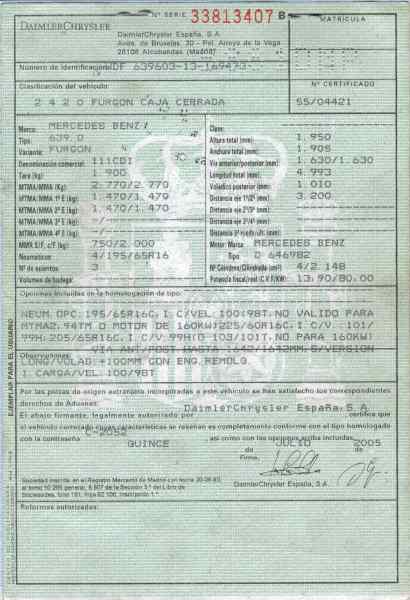 Nº SERIE 33813407 B
MATRÍCULA
DAIMLERCHRYSLER
DaimlerChrysler España, S.A.
Avda. de Bruselas, 30 - Pol. Arroyo de la Vega
28108 Alcobendas (Madrid)
Número de identificación
Nº CERTIFICADO
Clasificación del vehículo:
2 4 2 0 FURGON CAJA CERRADA
55/04421
Marca: MERCEDES BENZ
Tipo: 639.0
Variante: FURGON
Denominación comercial: 111CDI
Tara (kg): 1.900
MTMA/MMA (Kg): 2.770/2.770
MTMA/MMA 1º E (Kg): 1.470/1.470
MTMA/MMA 2º E (Kg): 1.470/1.470
MTMA/MMA 3º E (Kg): -/-
MTMA/MMA 4º E (Kg): -/-
MMR S/F, c/F (kg): 750/2.000
Neumáticos: 4/195/65R16
Nº de asientos: 3
Volumen de bodega:
Clase:
Altura total (mm): 1.950
Anchura total (mm): 1.905
Vía anterior/posterior (mm): 1.630/1.630
Longitud total (mm): 4.993
Voladizo posterior (mm): 1.010
Distancia eje 1º/2º (mm): 3.200
Distancia eje 2º/3º (mm):
Distancia eje 3º/4º (mm):
Motor: Marca MERCEDES BENZ
Tipo: D 646982
Nº Cilindros/Cilindrada (cm³): 4/2.148
Potencia fiscal/real (C.V.F/KW): 13.90/80.00
Opciones incluidas en la homologación de tipo:
NEUM.OPC:195/65R16C,I.C/VEL:100/98T.NO VALIDO PARA
MTMA2.94TM O MOTOR DE 160KW;225/60R16C.I.C/V.:101/
99H.205/65R16C.I.C/V:99H(O 103/101T.NO PARA 160KW)
Observaciones: VIA ANT/POST HASTA 1642/1632MM.S/VERSION
LONG/VOLAD:+100MM.CON ENG.REMOLQ.
I.CARGA/VEL:100/98T
Por las piezas de origen extranjero incorporadas a este vehículo se han satisfecho los correspondientes
derechos de Aduanas: DaimlerChrysler España, S.A.
El abajo firmante, legalmente autorizado por certifica que
el vehículo carrozado cuyas características se reseñan es completamente conforme al tipo homologado
con la contraseña C-2052 así como con las opciones arriba incluidas.
QUINCE JULIO 2005
de de
Firma,
Sociedad inscrita en el Registro Mercantil de Madrid
DaimlerChrysler España, S.A.
Reformas autorizadas:
EJEMPLAR PARA EL USUARIO